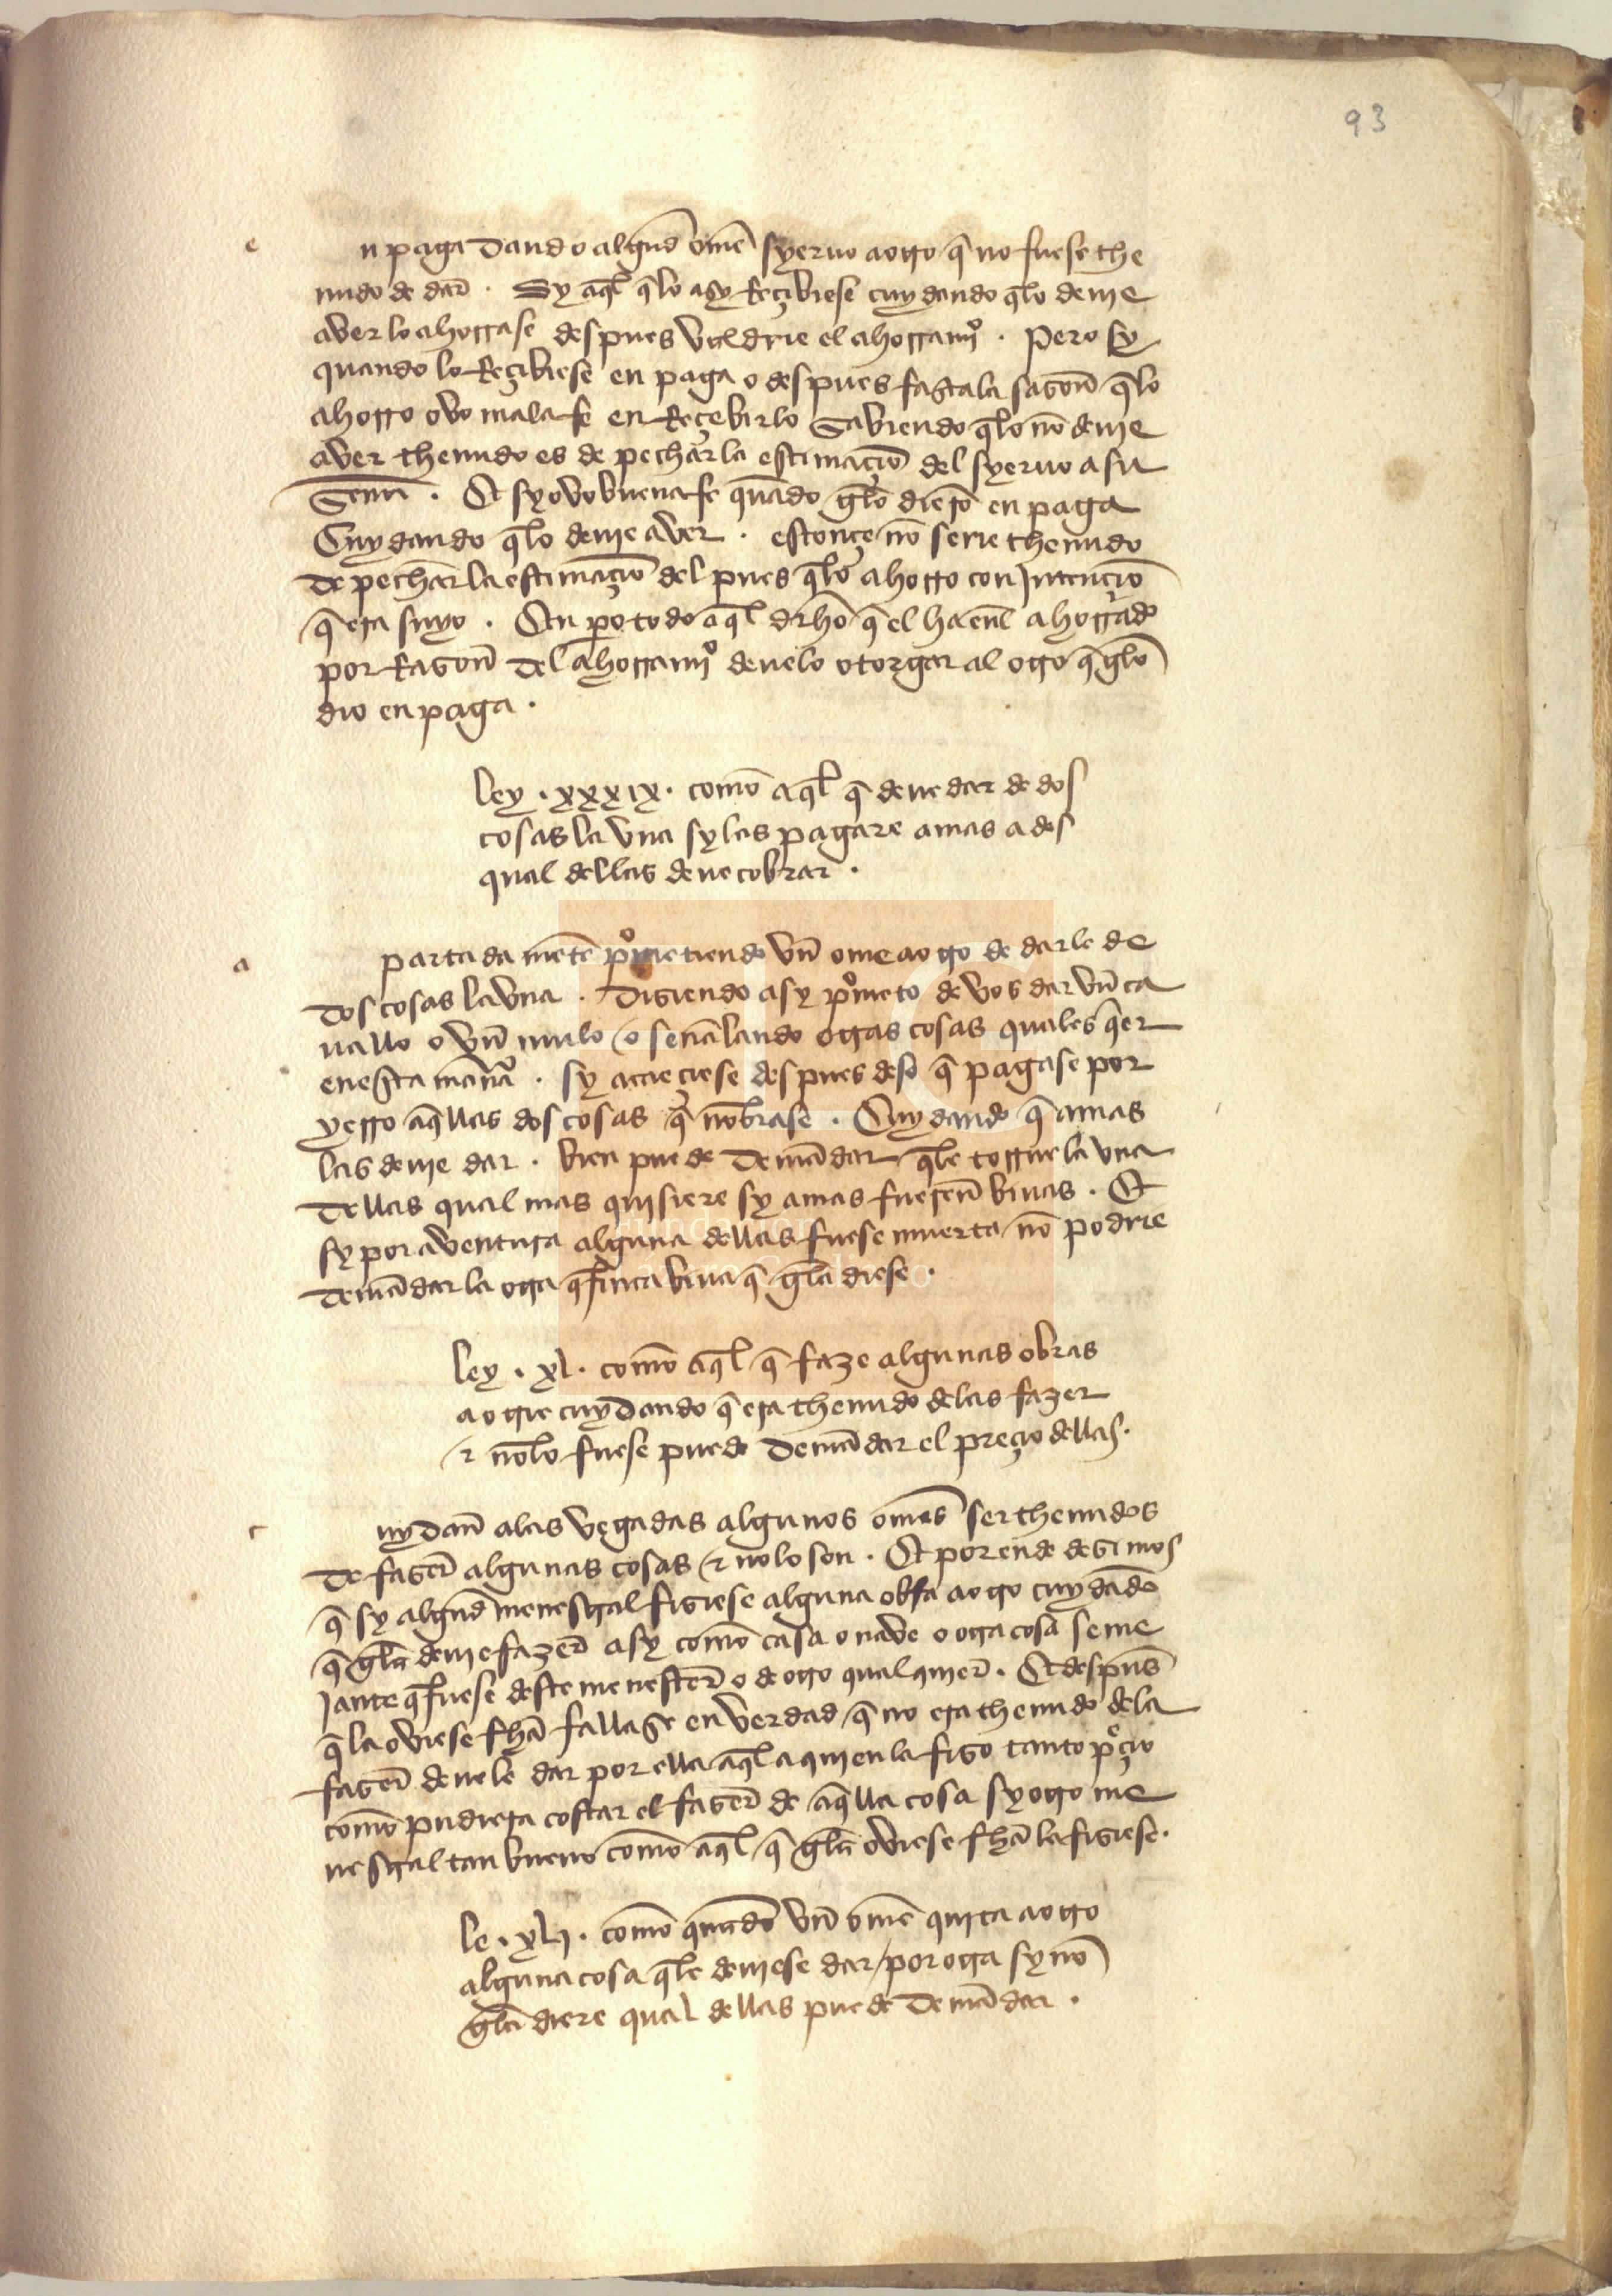 93
e n paga dando algund ome syeruo a otro q̃ no fuese the
nudo de dar . Sy aq̃l q̃lo asy Reçibiese cuydando q̃lo deuie
aver lo ahorrase despues valdrie el ahorramo . Pero sy
quando lo Reçibiese en paga o despues fasta la sazon q̃lo
ahorro ovo mala fe en Reçebirlo Sabiendo q̃lo no deuie
aver thenudo es de pechar la estimaçio del syeruo a su
Senor . Et sy ovo buena fe quãdo gelo diero en paga
Cuydando q̃lo deuie aver . estonçe no serie thenudo
de pechar la estimaçio del pues q̃lo ahorro con Intençio
q̃ era suyo . En po todo aq̃l drho q̃ el ha enl ahorrado
por Razon del ahorramo deuelo otorgar al otro q̃ gelo
dio en paga .
ley . xxxix . como aq̃l q̃ deue dar de dos
cosas la vna sy las pagare amas a dos
qual dellas deue cobrar .
a partada mẽte pometiendo vn ome a otro de darle de
dos cosas la vna . diziendo asy pometo de vos dar vn ca
uallo o vn mulo / o señalando otras cosas quales q̃er
en esta mana . sy acaeçiese despues deso q̃ pagase por
yerro aq̃llas dos cosas q̃ nõbrase . Cuydando q̃ amas
las deuie dar . bien puede demãdar q̃le torrne la vna
dellas qual mas quisiere sy amas fueren biuas . Et
sy por aventura alguna dellas fuese muerta no podrie
demãdar la otra q̃ finca biua q̃ gela diese .
ley . xl . como aq̃l q̃ faze algunas obras
a otrie cuydando q̃ era thenudo delas fazer
& nõlo fuese puede demãdar el preçio dellas .
c uydan alas vegadas algunos omes ser thenudos
de fazer algunas cosas & nolo son . Et por ende dezimos
q̃ sy algund menestral fiziese alguna obra a otro cuydãdo
q̃ gela deuie fazer asy como casa o nave o otra cosa seme
jante q̃ fuese deste menester o de otro qual quier . Et despues
q̃ la oviese fha fallase en verdad q̃ no era thenudo dela
fazer deuele dar por ella aq̃l a quien la fizo tanto pçio
como pudiera costar el fazer de aq̃lla cosa sy otro me
nestral tan bueno como aq̃l q̃ gela oviese fha la fiziese .
le . xli . como quãdo vn ome quita a otro
alguna cosa q̃le deuiese dar / por otra sy no
gela diere qual dellas puede demãdar .